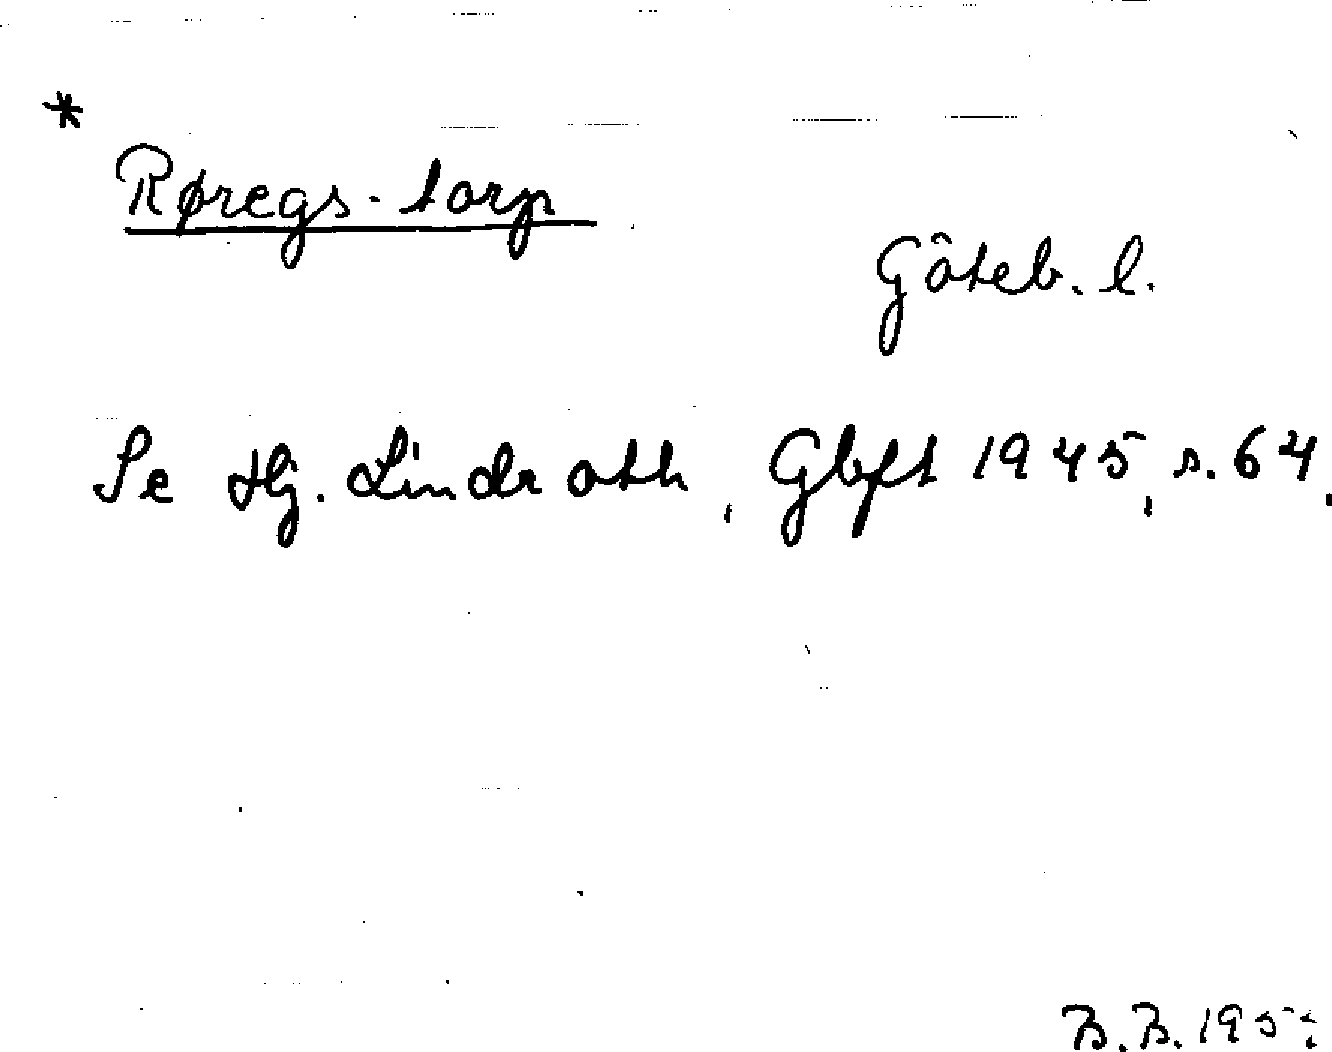 *
Røregs-torp
Göteb. l.
Se Hj. Lindroth, Gbft 1945, s. 64.
B.B.